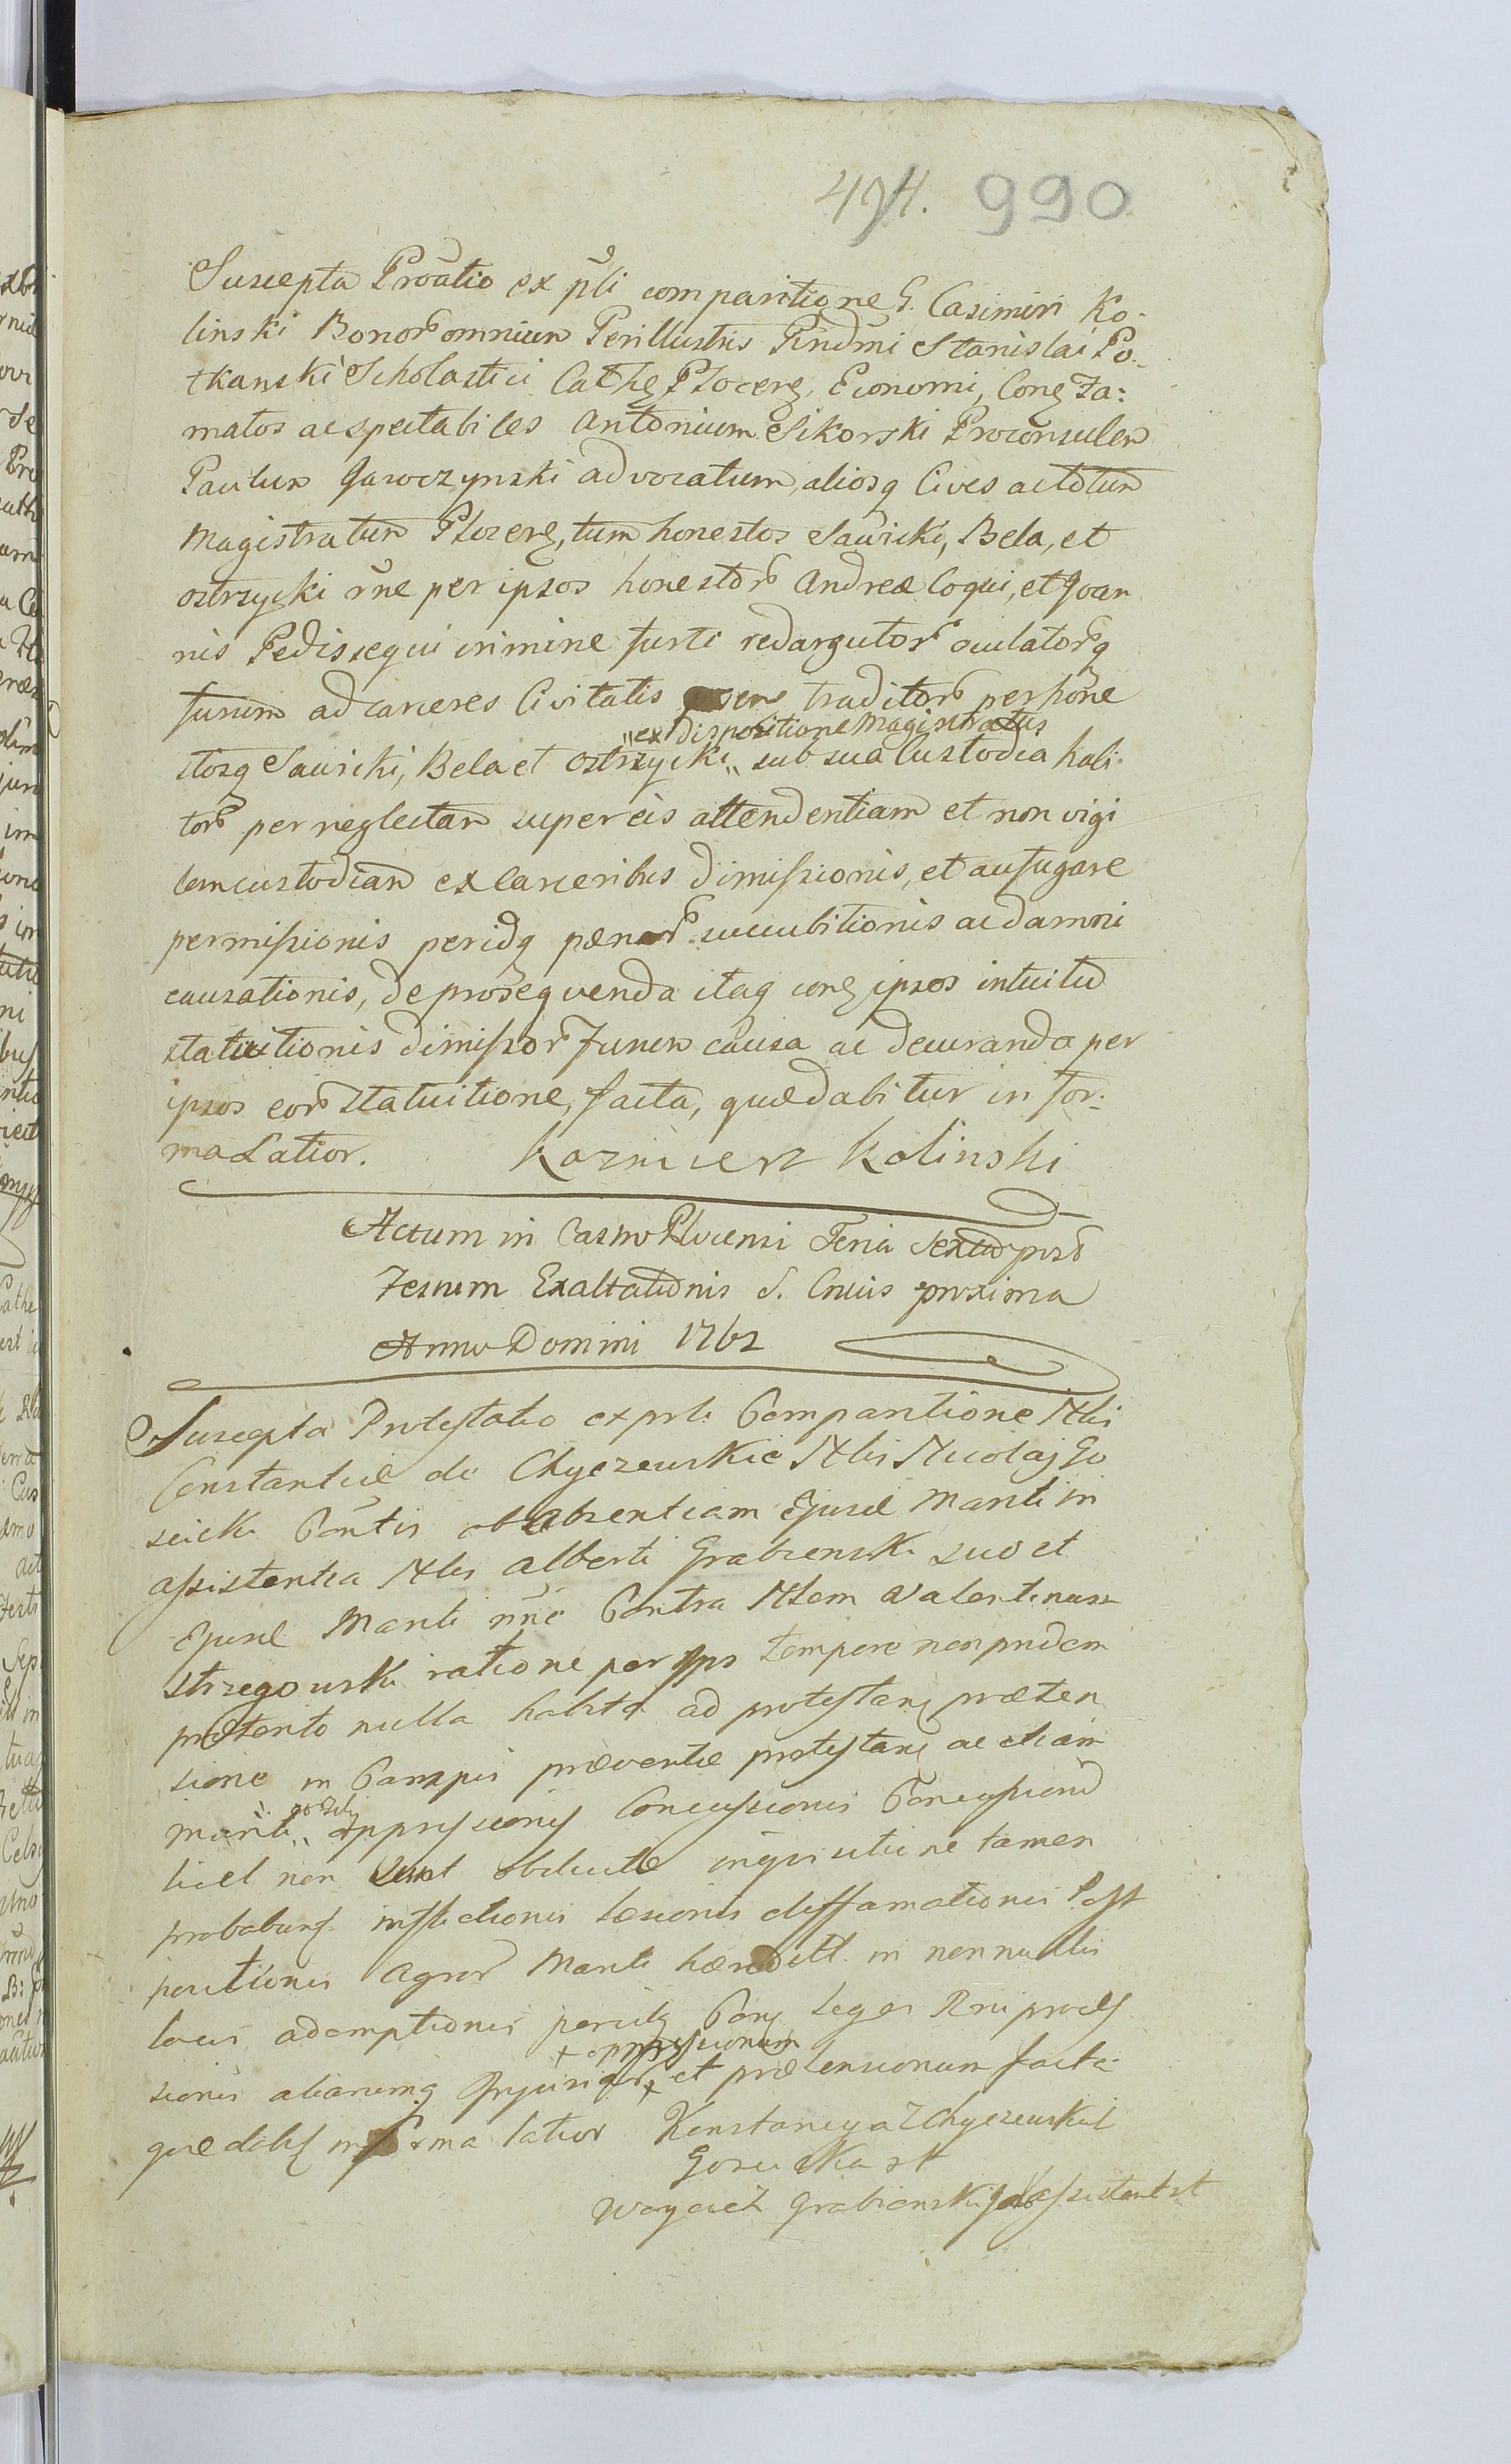 494. 990
Suscepta Proatio ex pſti comparitione G. Casimiri Ko-
linski Bonor omnium Perillustris Rndmi Stanislai Po-
tkanski Scholastici Cathę Płocenę, Economi, Conę Fa:
matos ac spectabiles Antonium Sikorski Proconsulem
Paulum Gawoczynski advocatum, aliosq Cives ac totum
Magistratum Płocenę, tum honestos Sawicki, Bela, et
Ostrzycki rñe per ipsos honestor Andreæ Coqui, et Joan
nis Pedissequi crimine furti redargutor oculatorq
furum ad carceres Civitatis traditor per hone
"ex dispositione Magistratus
stosq Sawicki, Bela et Ostrzycki " sub sua Custodia habi-
tor per neglectam super eis attendentiam et non vigi
lem custodiam ex Carceribus dimissionis, et aufugare
permissionis peridq pænar succubitionis ac damni
causationis, de prosequenda itaq conę ipsos intuitu
statuitionis dimissor Furum causa ac decuranda per
ipsos eor statuitione, facta, quæ dabitur in for-
ma Latior. Kazmierz Kolinski
Actum in Castro Plocensi Feria Sexta post
Festum Exaltationis S. Crucis proxima
Anno Domini 1762
Suscepta Protestatio ex pſti Comparitione Nlis
Constantiæ de Chyczewskie Nlis Nicolaj Go
scicki Contis ob absentiam Ejusd Mariti in
assistentia Nlis Alberti Grabienski suo et
Ejusd Mariti rñne Contra Nlem Valentinum
Strzegowski ratione per Ips tempore non pridem
præterito nulla habita ad protestanę præten
sione in Campis præventæ protestanę ac etiam
mariti " oppressionis Concussionis
licet non sunt inquisitione tamen
probabunę inflictionis læsionis diffamationis Post
positionis Agror Mariti hæredit in nonnullis
locis ademptionis peridq Conę Leges
+ oppressionum
sionis aliarumq Injuriar + et prætensionum facta
quæ dabię in forma latior Konstancya z Chyczewskich
Goscicka st
Woyciech Grabienski jako assistent st